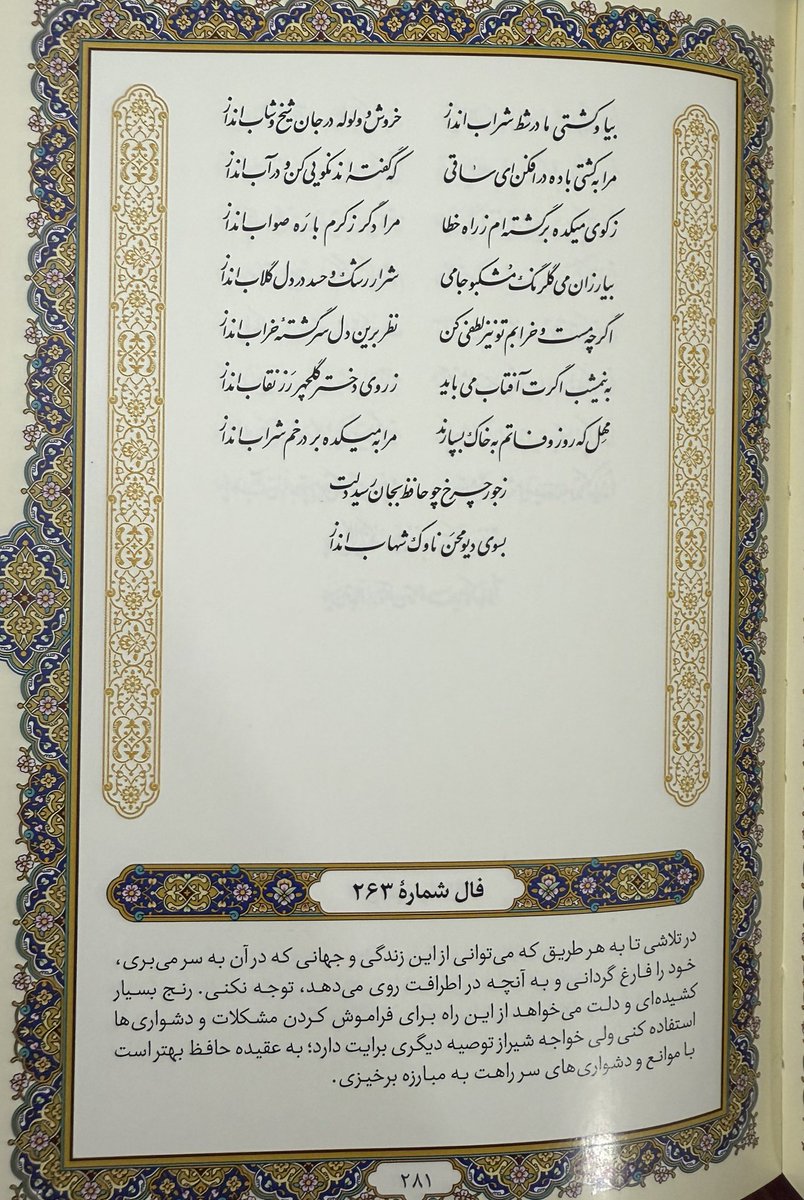 بیا و کشتی ما در شط شراب انداز خروش و ولوله در جان شیخ و شاب انداز
مرا به کشتی باده در افکن ای ساقی که گفته اند نکویی کن و در آب انداز
ز کوی میکده برگشته ام ز راه خطا مرا دگر ز کرم با ره صواب انداز
بیار زان می گلرنگ مشکبو جامی شرار رشک و حسد در دل گلاب انداز
اگرچه مست و خرابم تو نیز لطفی کن نظر برین دل سرگشتهٔ خراب انداز
به نیمشب اگرت آفتاب می باید ز روی دختر گلچهر رز نقاب انداز
مهل که روز وفاتم به خاک بسپارند مرا به میکده بر در خم شراب انداز
ز جور چرخ چو حافظ بجان رسید دلت
بسوی دیو محن ناوک شهاب انداز
فال شمارهٔ ۲۶۳
در تلاشی تا به هر طریق که می‌توانی از این زندگی و جهانی که در آن به سر می‌بری،
خود را فارغ گردانی و به آنچه در اطرافت روی می‌دهد، توجه نکنی. رنج بسیار
کشیده‌ای و دلت می‌خواهد از این راه برای فراموش کردن مشکلات و دشواری‌ها
استفاده کنی ولی خواجه شیراز توصیه دیگری برایت دارد؛ به عقیده حافظ بهتر است
با موانع و دشواری‌های سر راهت به مبارزه برخیزی.
۲۸۱